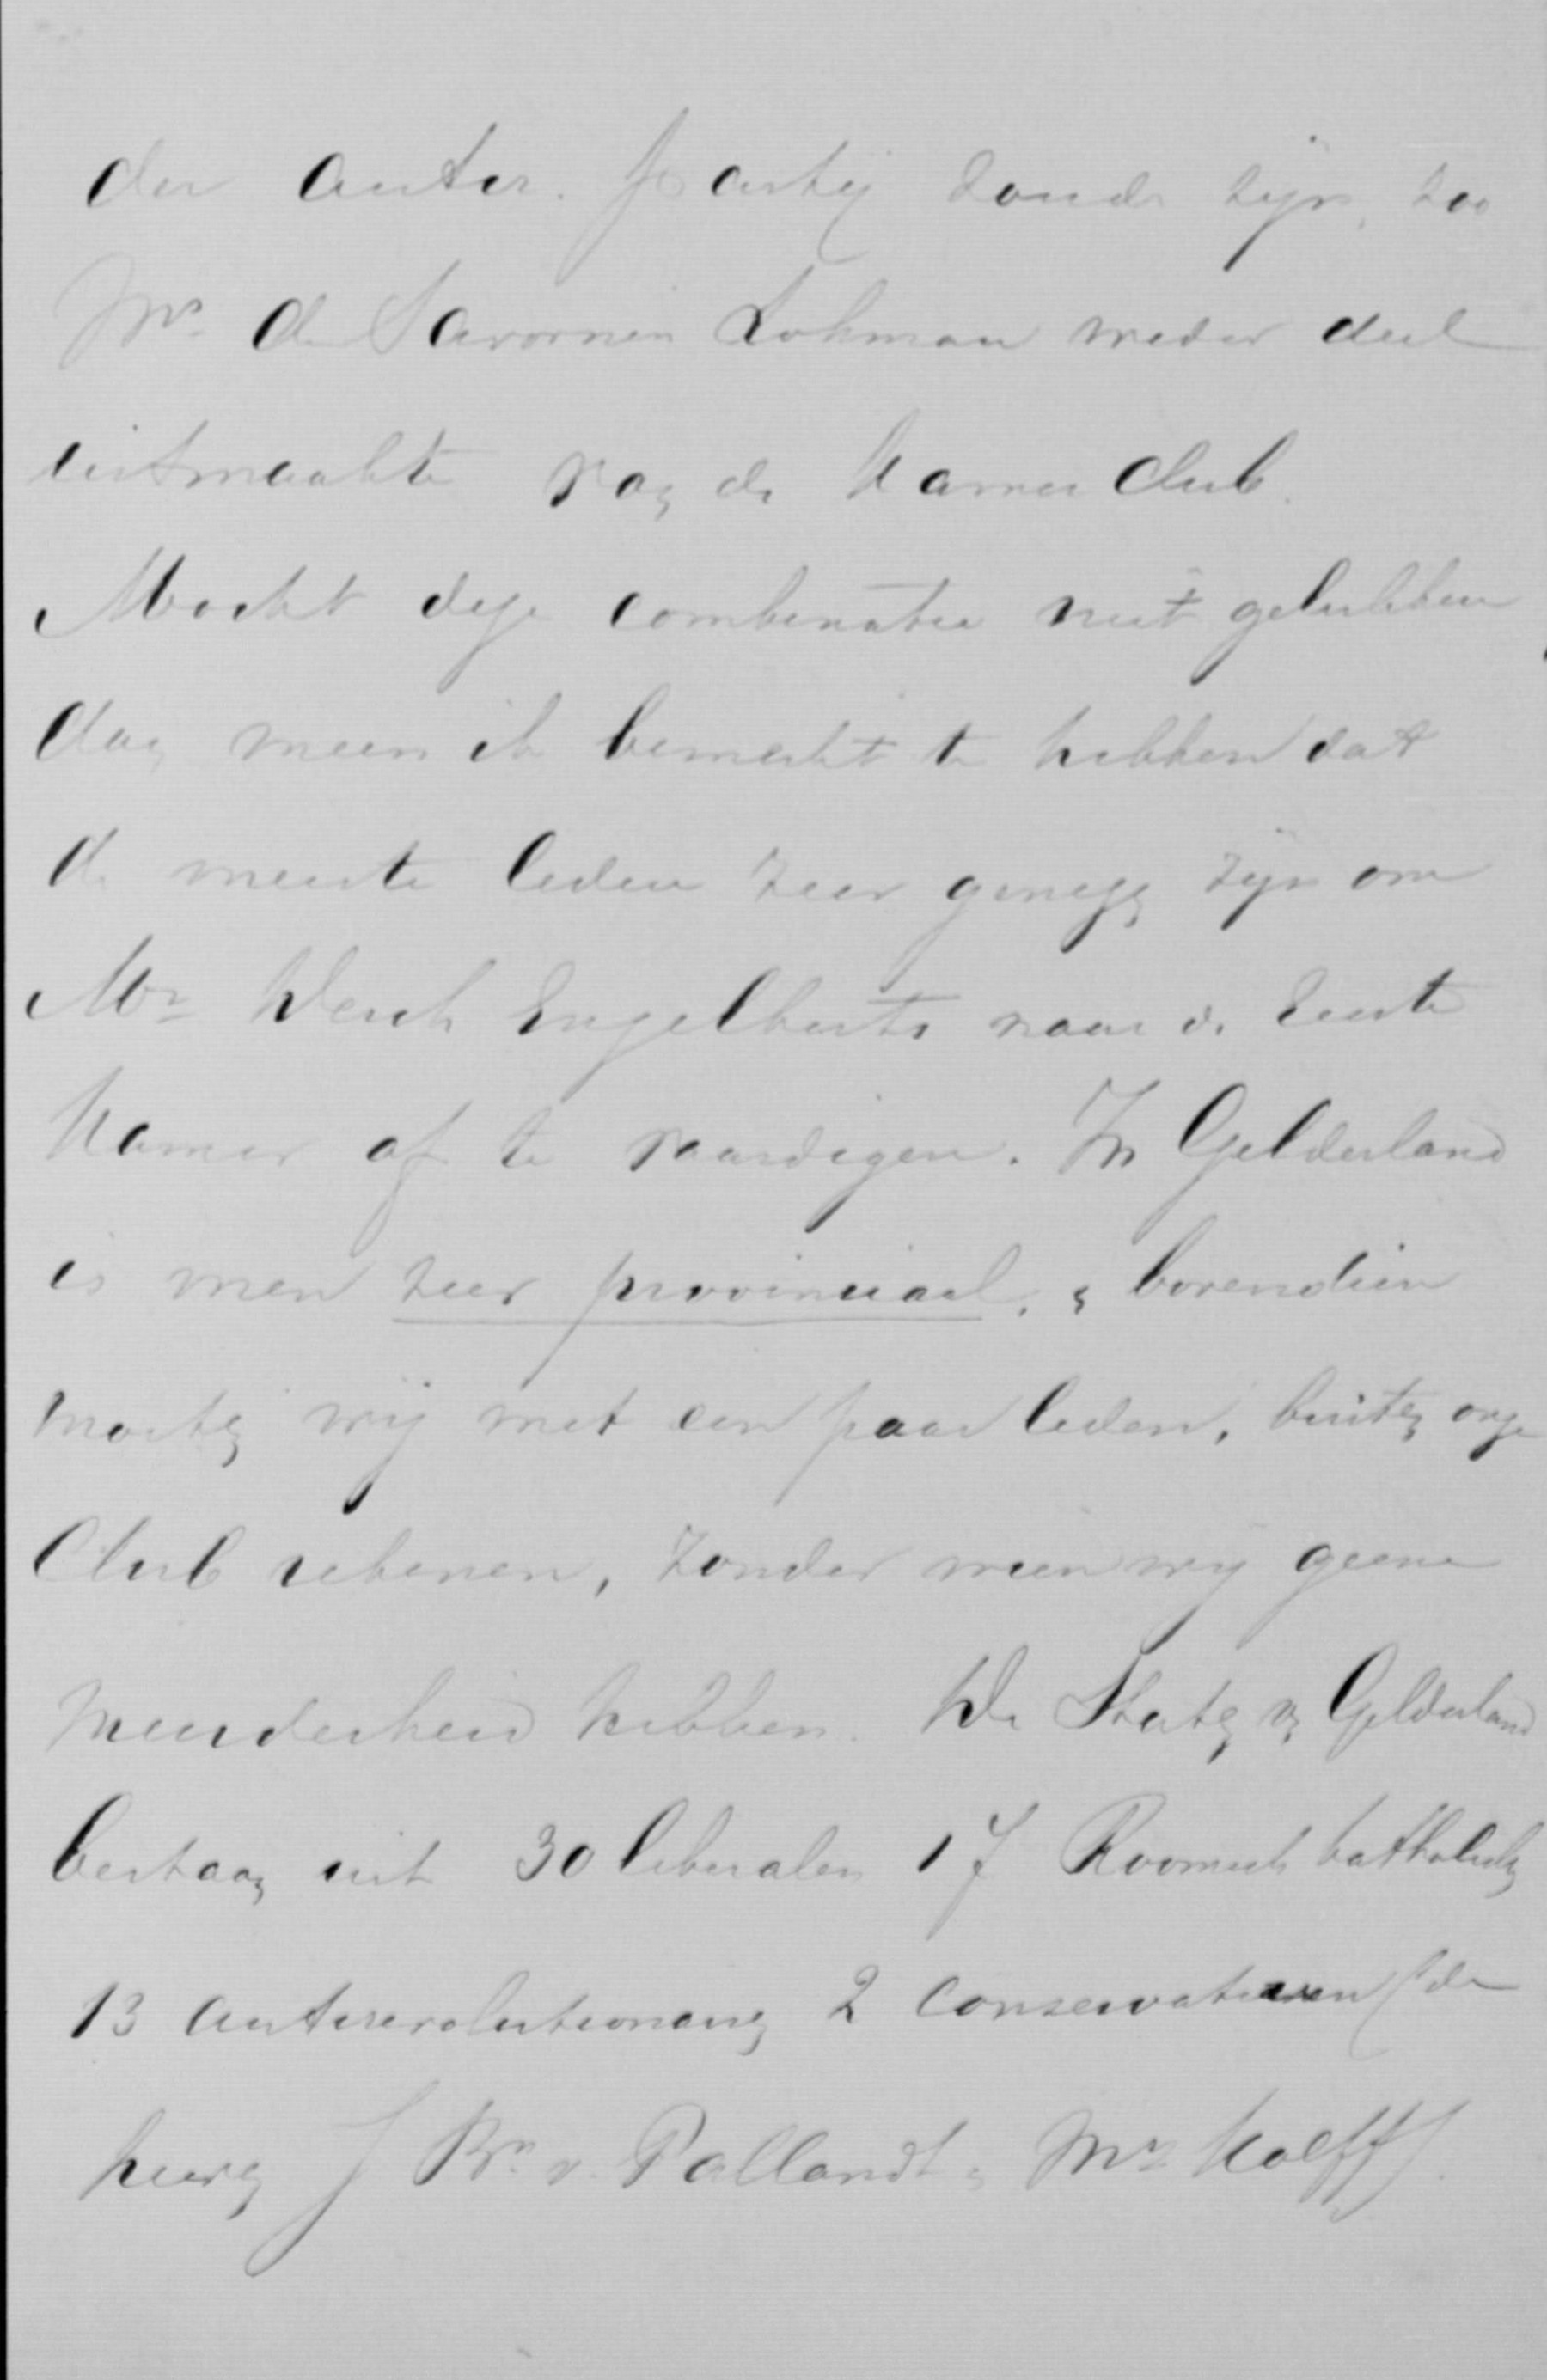 der antir. partij zoude zijn, zoo
Mr. de Savornin Lohman weder deel
uitmaakte van de Kamerclub.
Mocht deze combinatie niet gelukken
dan meen ik bemerkt te hebben dat
de meeste leden zeer genegen zijn om
Mr Derck Engelberts naar de Eerste
Kamer af te vaardigen. In Gelderland
is men zeer provinciaal, en bovendien
moeten wij met een paar leden, buiten onze
Club rekenen, zonder wien wij geene
meerderheid hebben. De Staten v. Gelderland
bestaan uit 30 liberalen 17 Roomsch katholieken
13 antirevolutionairen 2 conservatieven (de
heeren J Bn. v. Pallandt en Mr Kolff)